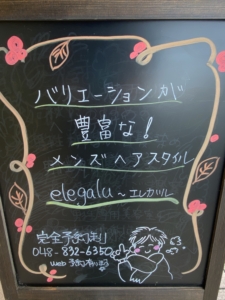 バリエーションが
豊富な!
メンズヘアスタイル
elegalu～エレガル
完全予約制
048-832-6350
web予約有ります